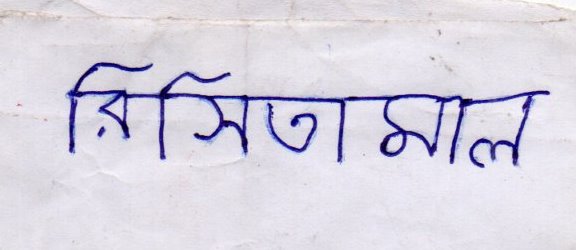 রিসিতা মাল